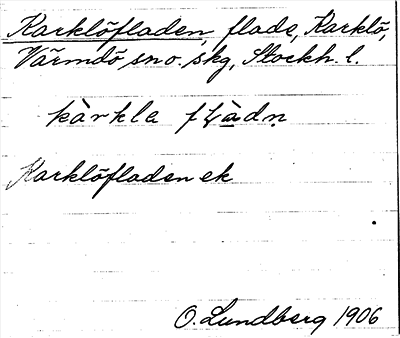 Karklöfladen, flade, Karklö,
Värmdö sno. skg, Stockh. l.
kàrkla fɭàdṇ
Karklöfladen ek
O. Lundberg 1906